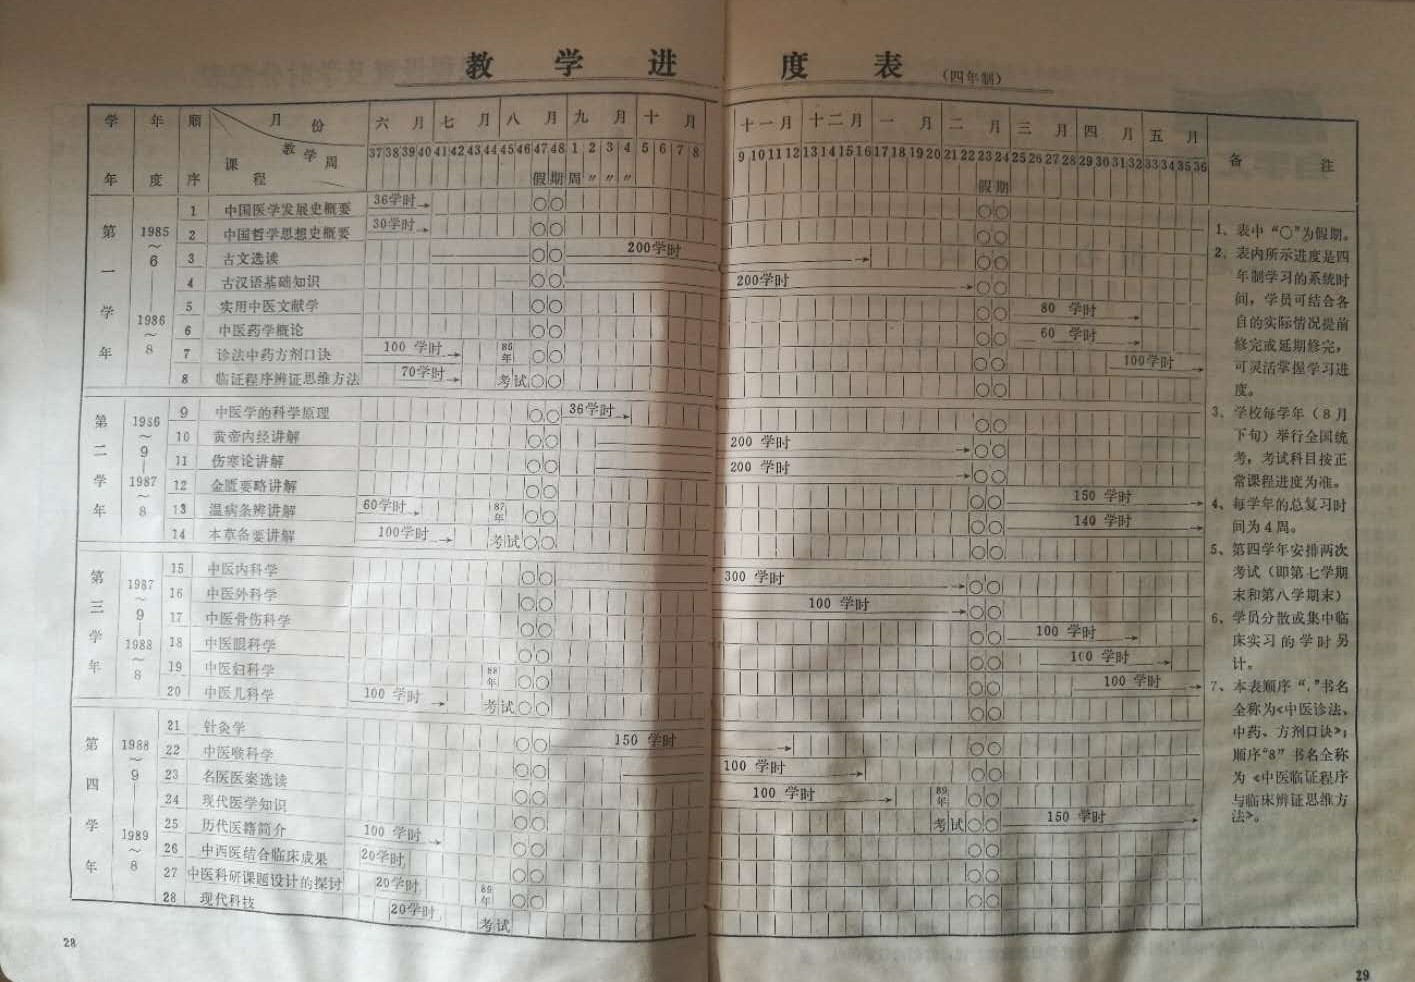 教学进度表 (四年制)
学年 年度 顺序 月份 教学周 课程 六月 七月 八月 九月 十月 十一月 十二月 一月 二月 三月 四月 五月 备注
37 38 39 40 41 42 43 44 45 46 47 48 1 2 3 4 5 6 7 8 9 10 11 12 13 14 15 16 17 18 19 20 21 22 23 24 25 26 27 28 29 30 31 32 33 34 35 36
假期 周 〃 〃 〃 假期
第一学年 1985~6 1986~8
1 中国医学发展史概要 36学时 ○○ ○○
2 中国哲学思想史概要 30学时 ○○ ○○
3 古文选读 ○○ 200学时 ○○
4 古汉语基础知识 ○○ 200学时 ○○
5 实用中医文献学 ○○ ○○ 80 学时
6 中医药学概论 ○○ ○○ 60 学时
7 诊法中药方剂口诀 100 学时 86年 ○○ ○○ 100学时
8 临证程序辨证思维方法 70学时 考试 ○○ ○○
第二学年 1986~9 1987~8
9 中医学的科学原理 ○○ 36学时 ○○
10 黄帝内经讲解 ○○ 200 学时 ○○
11 伤寒论讲解 ○○ 200 学时 ○○
12 金匮要略讲解 ○○ ○○ 150 学时
13 温病条辨讲解 60学时 87年 ○○ ○○ 140 学时
14 本草备要讲解 100学时 考试 ○○ ○○
第三学年 1987~9 1988~8
15 中医内科学 ○○ 300 学时 ○○
16 中医外科学 ○○ 100 学时 ○○
17 中医骨伤科学 ○○ ○○ 100 学时
18 中医眼科学 ○○ ○○ 100 学时
19 中医妇科学 88年 ○○ ○○ 100 学时
20 中医儿科学 100 学时 考试 ○○ ○○
第四学年 1988~9 1989~8
21 针灸学 ○○ 150 学时 ○○
22 中医喉科学 ○○ 100 学时 ○○
23 名医医案选读 ○○ 100 学时 89年 ○○
24 现代医学知识 ○○ 考试 ○○ 150 学时
25 历代医籍简介 100 学时 ○○ ○○
26 中西医结合临床成果 20学时 ○○ ○○
27 中医科研课题设计的探讨 20学时 89年 ○○ ○○
28 现代科技 20学时 考试
1、表中“○”为假期。
2、表内所示进度是四
年制学习的系统时
间，学员可结合各
自的实际情况提前
修完或延期修完，
可灵活掌握学习进
度。
3、学校每学年（8月
下旬）举行全国统
考，考试科目按正
常课程进度为准。
4、每学年的总复习时
间为4周。
5、第四学年安排两次
考试（即第七学期
末和第八学期末）
6、学员分散或集中临
床实习的学时另
计。
7、本表顺序“.”书名
全称为《中医诊法、
中药、方剂口诀》；
顺序“8”书名全称
为《中医临证程序
与临床辨证思维方
法》。
28
29